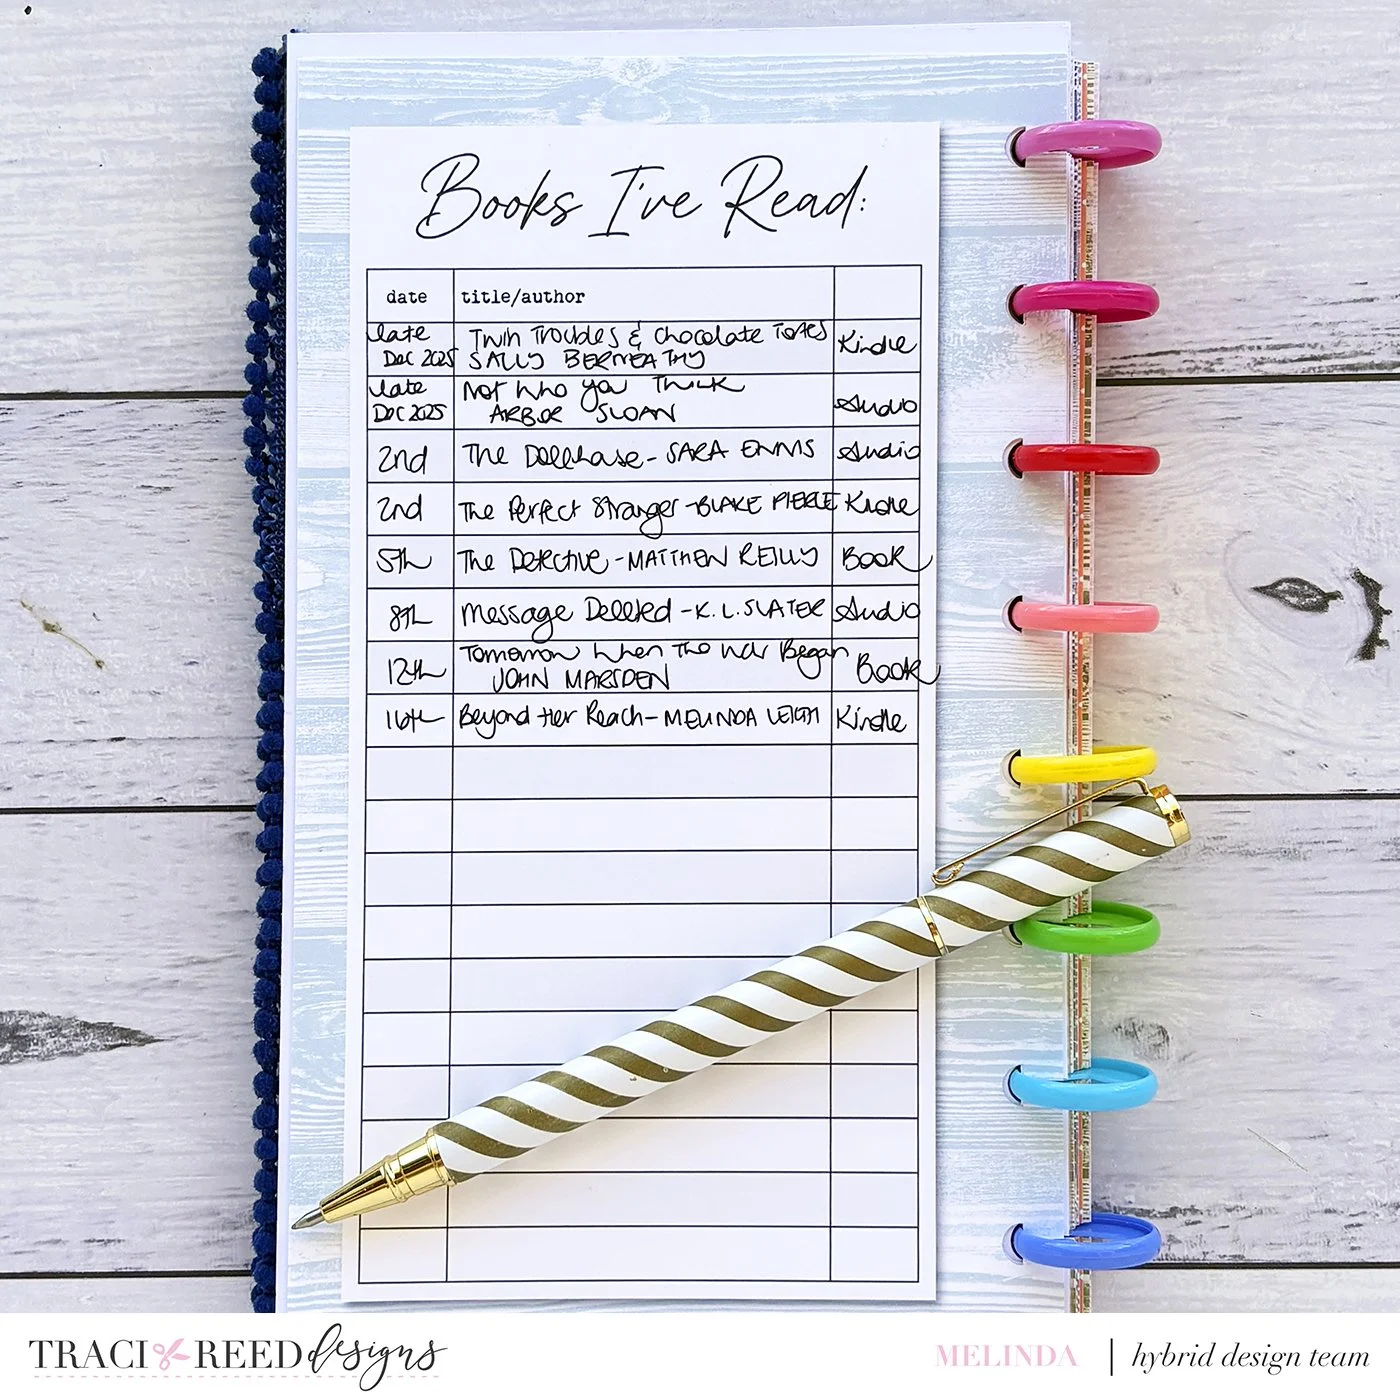 Books I've Read:
date title/author
late Twin Troubles & Chocolate Tortes Kindle
Dec 2025 SALLY BERNEATHY
late Not Who You Think Audio
Dec 2025 ARBOR SLOAN
2nd The Dollhouse - SARA ENNIS Audio
2nd The Perfect Stranger - BLAKE PIERCE Kindle
5th The Detective - MATTHEW REILLY Book
8th Message Deleted - K.L. SLATER Audio
12th Tomorrow When The War Began Book
JOHN MARSDEN
16th Beyond Her Reach - MELINDA LEIGH Kindle
TRACI REED designs
MELINDA | hybrid design team